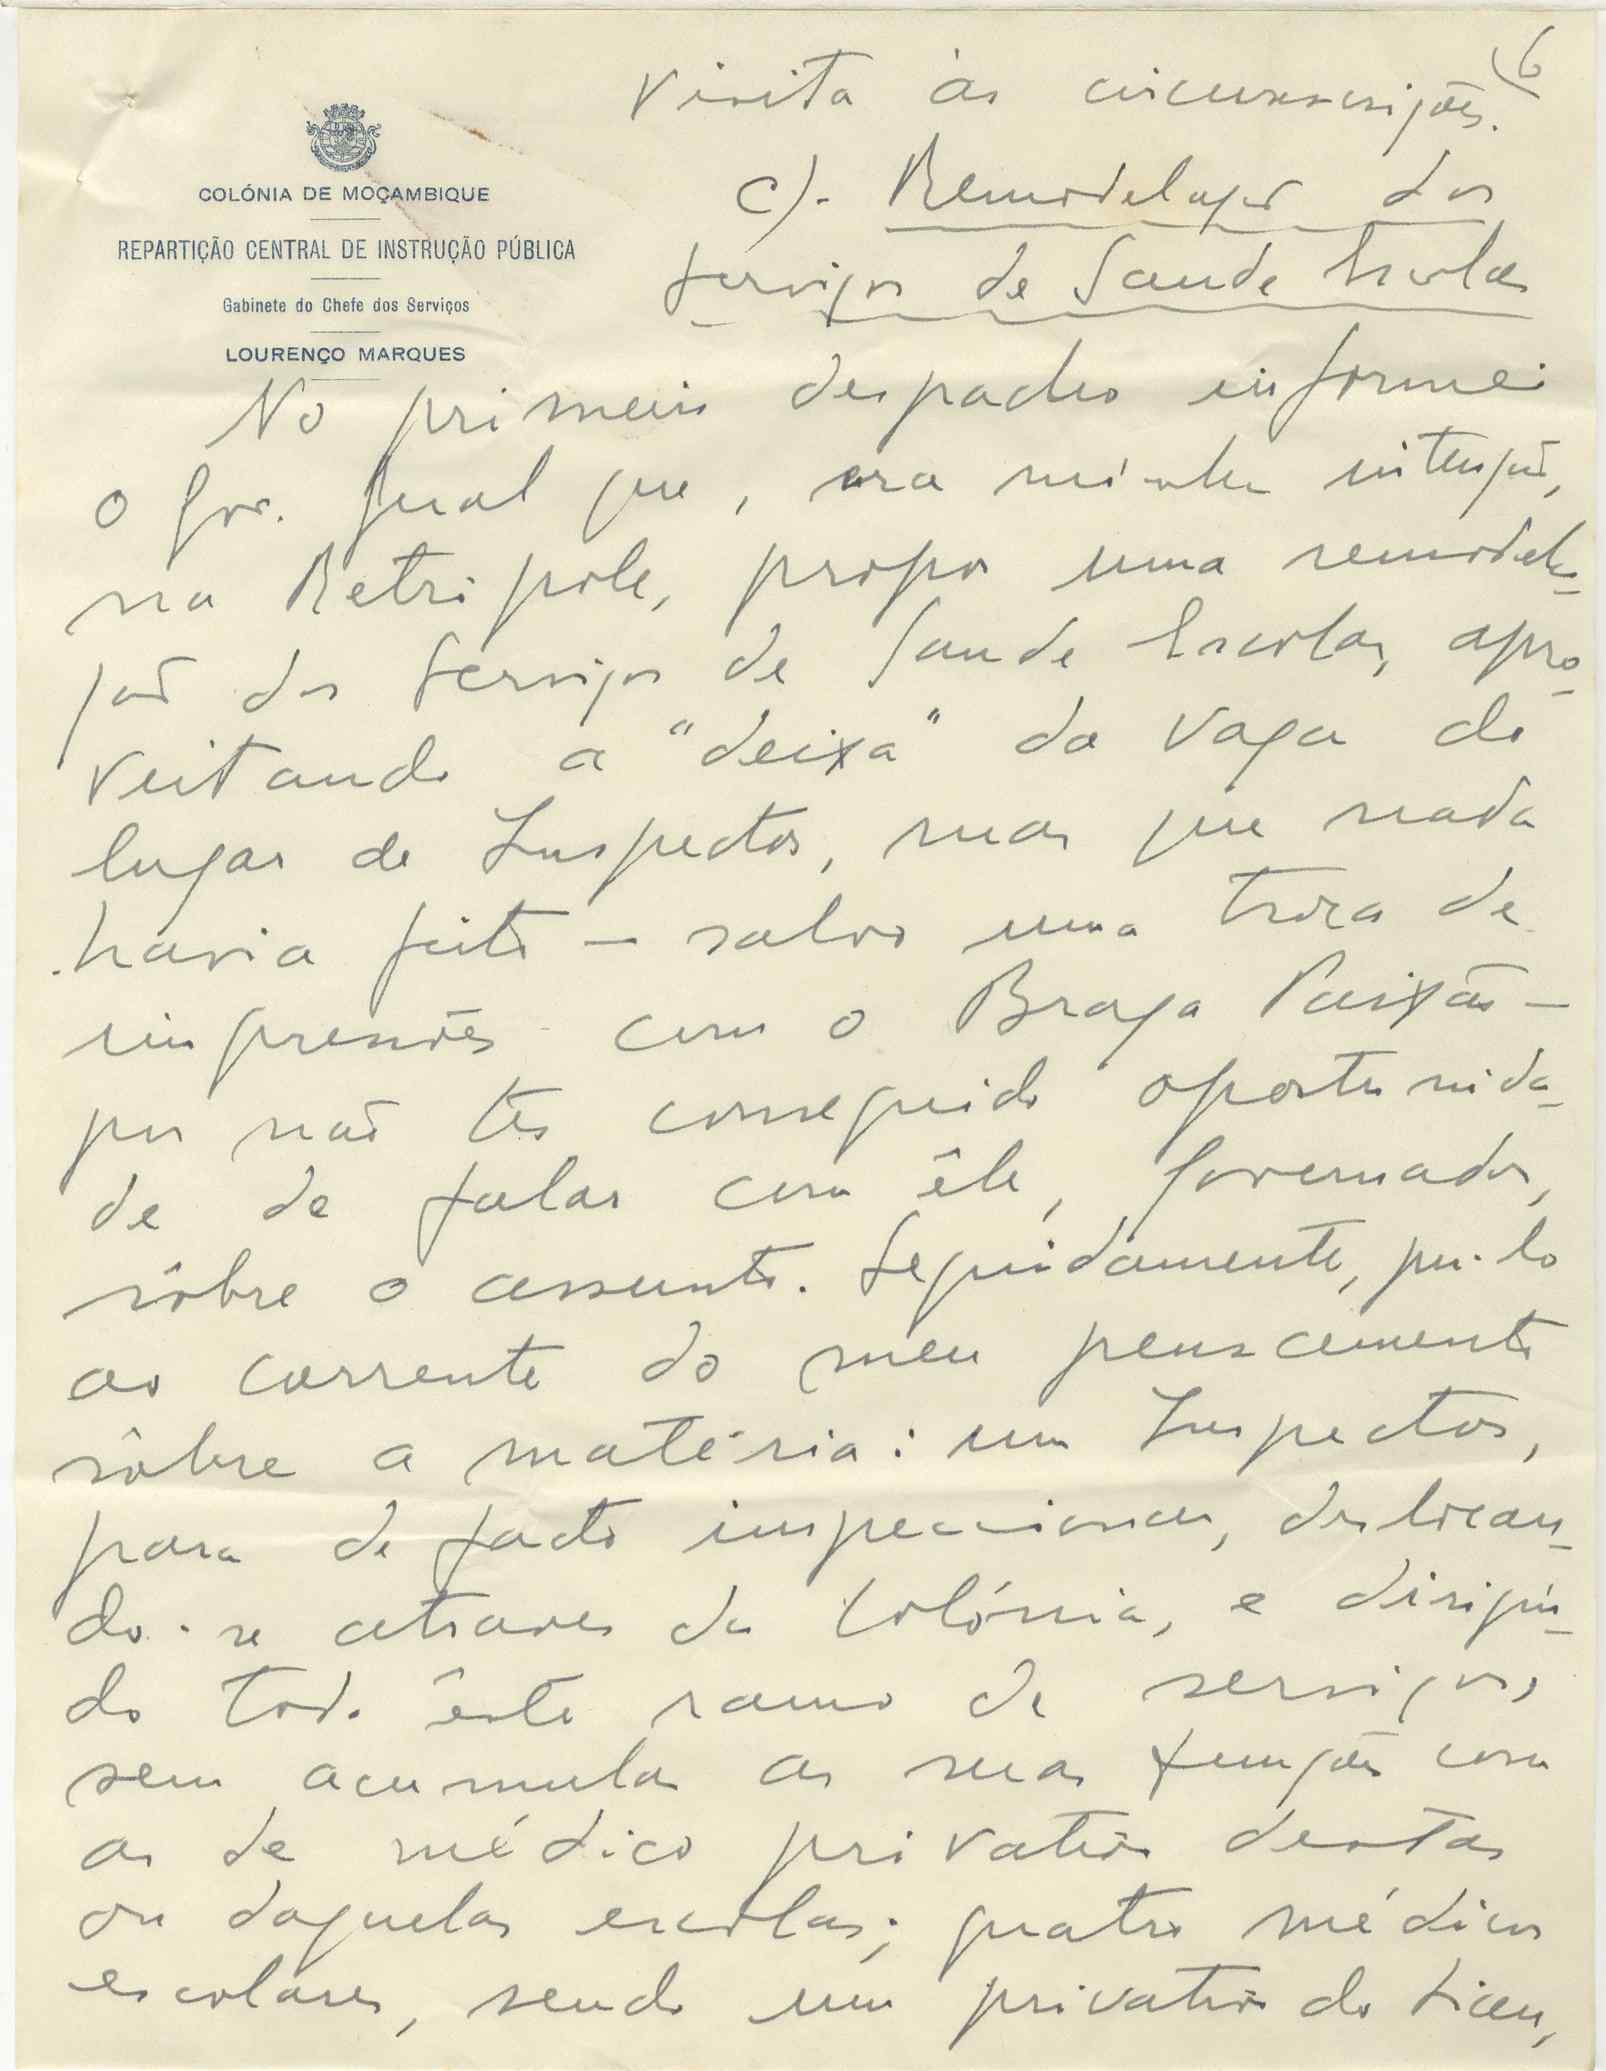 6
visita às circunscrições.
COLÓNIA DE MOÇAMBIQUE
REPARTIÇÃO CENTRAL DE INSTRUÇÃO PÚBLICA
Gabinete do Chefe dos Serviços
LOURENÇO MARQUES
c).- Remodelação dos
Serviços de Saude Escolar
No primeiro despacho informei
o Gov. Geral que, era minha intenção,
na Metrópole, propor uma remodela-
ção dos Serviços de Saude Escolar, apro-
veitando a "deixa" da vaga do
lugar de Inspector, mas que nada
havia feito — salvo uma troca de
impressões com o Braga Paixão —
por não ter conseguido oportunida-
de de falar com êle, Governador,
sôbre o assunto. Seguidamente, pu-lo
ao corrente do meu pensamento
sôbre a matéria: um Inspector,
para de facto inspeccionar, deslocan-
do-se atraves da Colónia, e dirigin-
do todo êste ramo de serviços,
sem acumular as suas funções com
as de médico privativo destas
ou daquelas escolas; quatro médicos
escolares, sendo um privativo do Liceu,